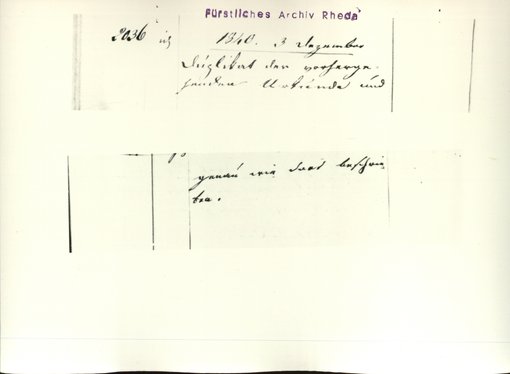 Fürstliches Archiv Rheda
2036 1340. 3 Dezember
Duplikat der vorherge-
henden Urkunde und
genau wie dort beschrie-
ben.